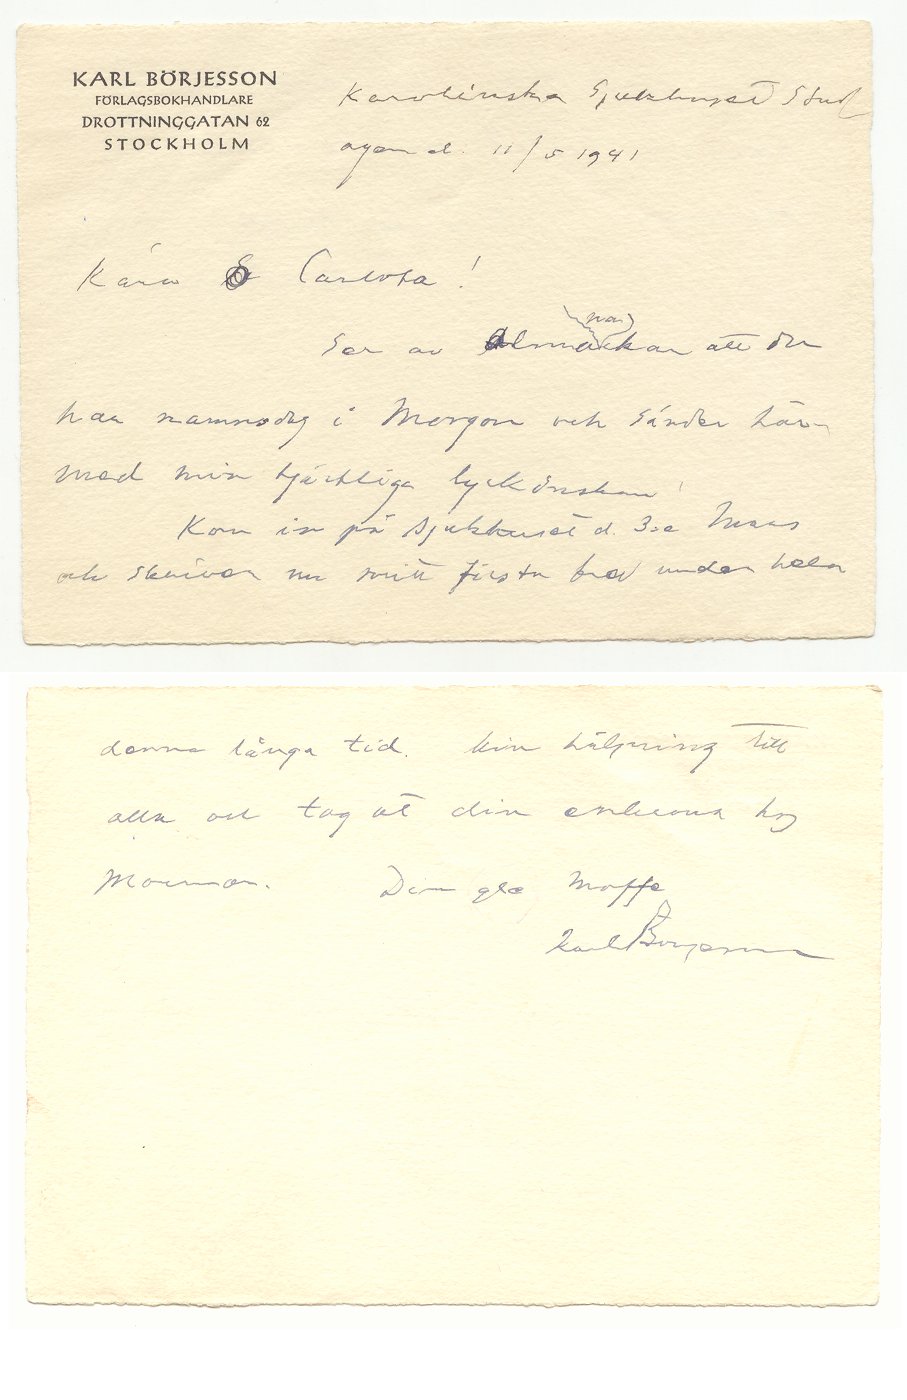 KARL BÖRJESSON
FÖRLAGSBOKHANDLARE
DROTTNINGGATAN 62
STOCKHOLM
Karolinska Sjukhuset Sönd
agen d. 11/5 1941
Kära Carlota!
Ser av Almanackan att du
har namnsdag i Morgon och sänder här
med min hjärtliga lyckönskan!
Kom in på Sjukhuset d. 3:e Mars
och skriver nu mitt första brev under hela
denna långa tid. Min hälsning till
alla och tag åt din
Mormor. Din Moffa
Karl Börjesson